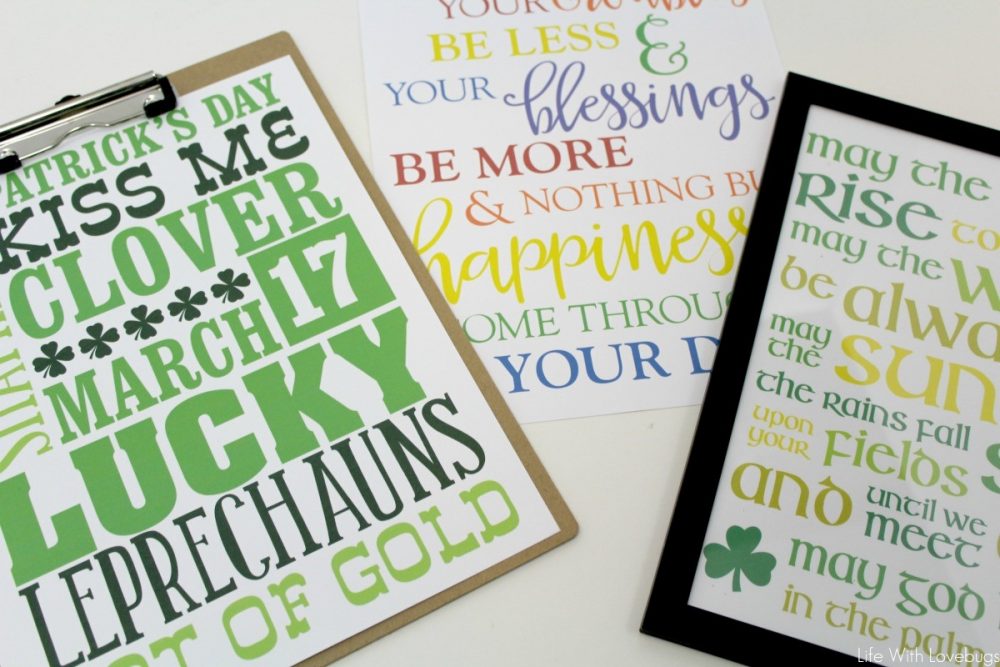 PATRICK'S DAY
KISS ME
CLOVER
MARCH 17
LUCKY
LEPRECHAUNS
OF GOLD
YOUR
BE LESS &
YOUR blessings
BE MORE
& NOTHING BU
happiness
OME THROUG
YOUR D
may the
rise to
may the w
be alwa
may
the sun
the rains fall s
upon
your fields
and until we
meet
may god
in the palm
Life With Lovebugs